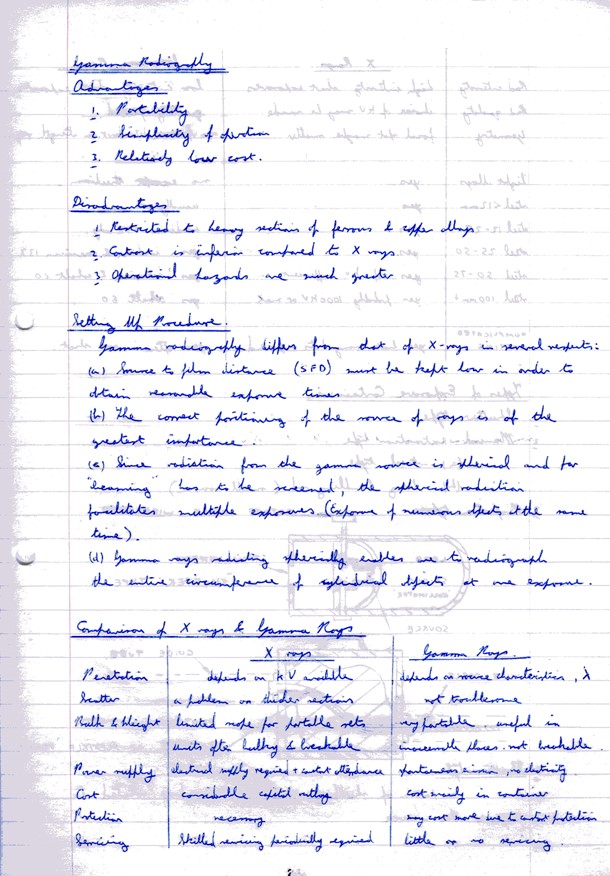 Gamma Radiography
Advantages
1. Portability
2. Simplicity of operation
3. Relatively low cost.
Disadvantages
1. Restricted to heavy sections of ferrous & copper alloys
2. Contrast is inferior compared to X rays.
3. Operational hazards are much greater
Setting Up Procedure.
Gamma radiography differs from that of X-rays in several respects:
(a) Source to film distance (SFD) must be kept low in order to
obtain reasonable exposure times
(b) The correct positioning of the source of rays is of the
greatest importance.
(c) Since radiation from the gamma source is spherical and for
"beaming" has to be screened, the spherical radiation
facilitates multiple exposures (Exposure of numerous objects at the same
time).
(d) Gamma rays radiating spherically enables one to radiograph
the entire circumference of cylindrical objects at one exposure.
Comparison of X rays & Gamma Rays
X rays Gamma Rays.
Penetration depends on kV available depends on source characteristics, λ
Scatter a problem on thicker sections not troublesome
Bulk & Weight limited scope for portable sets very portable. useful in
units often bulky & breakable inaccessible places. not breakable.
Power supply electrical supply required + constant attendance spontaneous emission, no electricity
Cost considerable capital outlay cost mainly in container
Protection necessary may cost more due to constant protection
Servicing Skilled servicing periodically required little or no servicing.